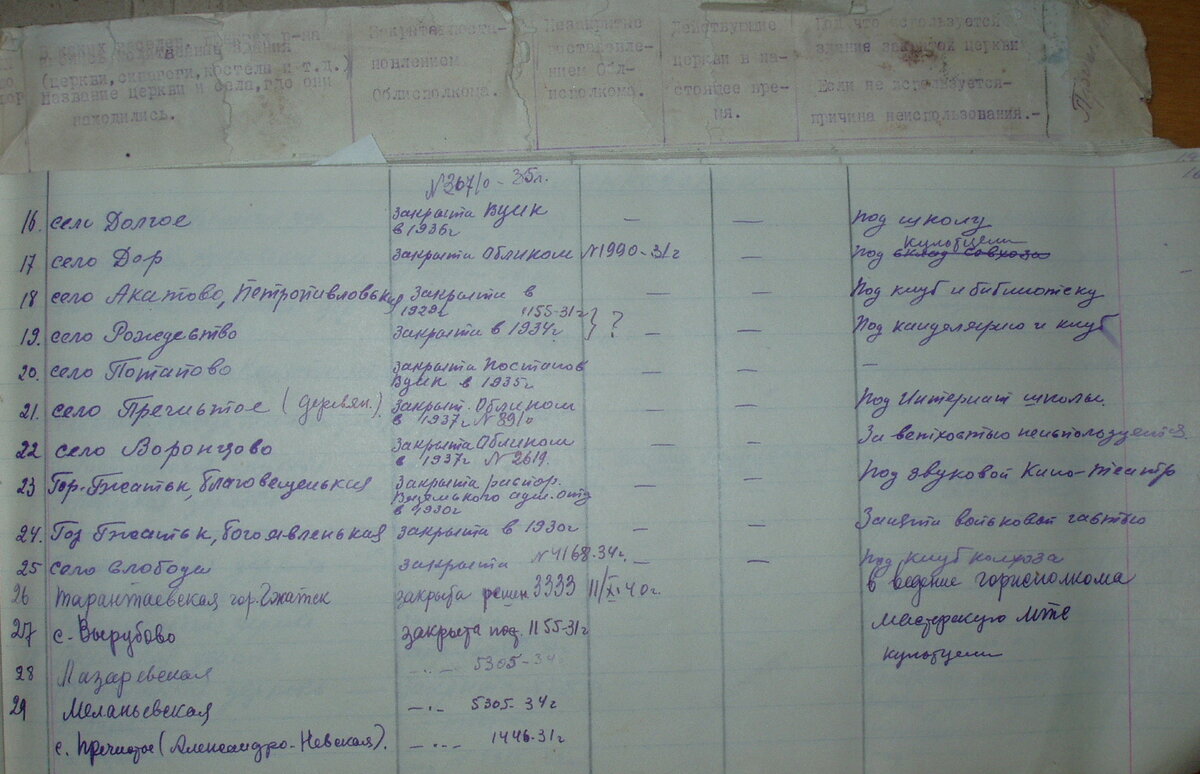 (церкви, синагоги, костелы и т.д.)
название церкви и села, где они
находились.
Закрыта постановлением
Облисполкома.
Незакрытие
постановле-
нием Обл-
исполкома.
Действующие
церкви в на-
стоящее вре-
мя.
Под что используется
здание закрытой церкви
Если не используется-
причина неиспользования.-
16. село Долгое закрыта ВЦИК в 1936г — — Под школу
17 село Дор закрыта Обликом N1990-31г — Под культцели склад совхоза
18 село Акатово, Петропавловская закрыта в 1929г 1155-31г — — Под клуб и библиотеку
19. село Рождество закрыта в 1934г } ? — — Под канцелярию и клуб
20. село Потапово закрыта Постанов ВЦИК в 1935г — — –
21. село Пречистое (деревян.) Закрыт. Обликом в 1937г N 891/0 — — Под Интернат школы.
22 село Воронцово закрыта Обликом в 1937г N 2619. — — За ветхостью неиспользуется
23 Гор. Гжатск, Благовещенская Закрыта распор. Вяземского адм. отд в 1930г — — Под звуковой Кино-театр
24. Гор Гжатск, богоявленская закрыта в 1930г — — Занята войсковой частью
25 село слобода закрыта N4168-34г. — — Под клуб колхоза
26 Тарантаевская гор. Гжатск закрыта решен 3333 11/XI 40г. в ведение горисполкома
27 с. Вырубово закрыта под. 1155-31г мастерскую МТС
28 Лазаревская —..— 5305-34 культцели
29 Меланьевская —..— 5305-34г
с. Пречистое (Александро-Невская). —..— 1446-31г